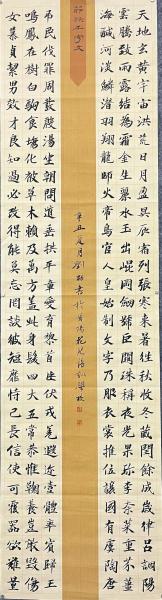 天地玄黃宇宙洪荒日月盈昃辰宿列張寒來暑往秋收冬藏閏餘成歲律呂調陽
雲騰致雨露結為霜金生麗水玉出崐岡劍號巨闕珠稱夜光果珍李柰菜重芥薑
海鹹河淡鱗潛羽翔龍師火帝鳥官人皇始制文字乃服衣裳推位讓國有虞陶唐
節錄千字文
辛丑夏月劉書於
弔民伐罪周發殷湯坐朝問道垂拱平章愛育黎首臣伏戎羌遐邇壹體率賓歸王
鳴鳳在樹白駒食場化被草木賴及萬方蓋此身髮四大五常恭惟鞠養豈敢毀傷
女慕貞絜男效才良知過必改得能莫忘罔談彼短靡恃己長信使可覆器欲難量